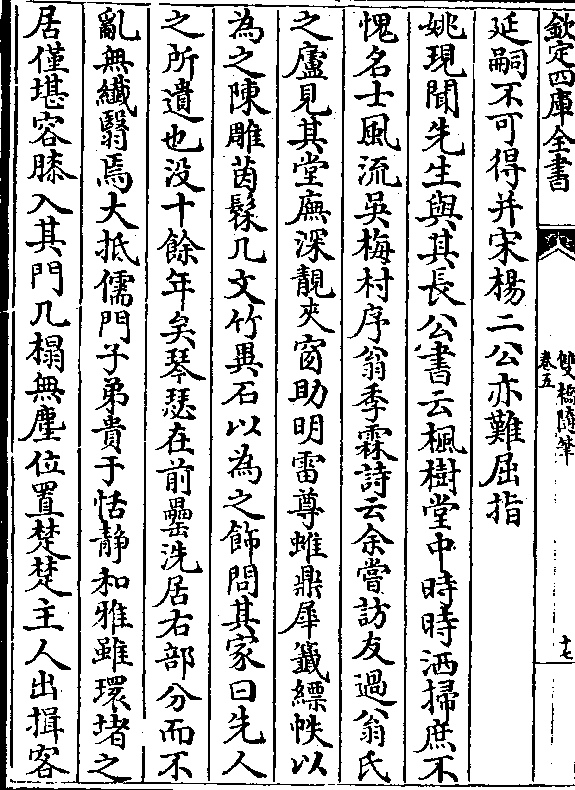 欽定四庫全書
雙橋隨筆
卷五
十七
延嗣不可得并宋楊二公亦難屈指
姚現聞先生與其長公書云楓樹堂中時時洒掃庶不
愧名士風流吳梅村序翁季霖詩云余嘗訪友過翁氏
之廬見其堂廡深靚夾窗助明雷尊蜼鼎犀籤縹帙以
為之陳雕茵髹几文竹異石以為之飾問其家曰先人
之所遺也没十餘年矣琴瑟在前罍洗居右部分而不
亂無纎翳焉大抵儒門子弟貴于恬静和雅雖環堵之
居僅堪容膝入其門几榻無塵位置楚楚主人出揖客